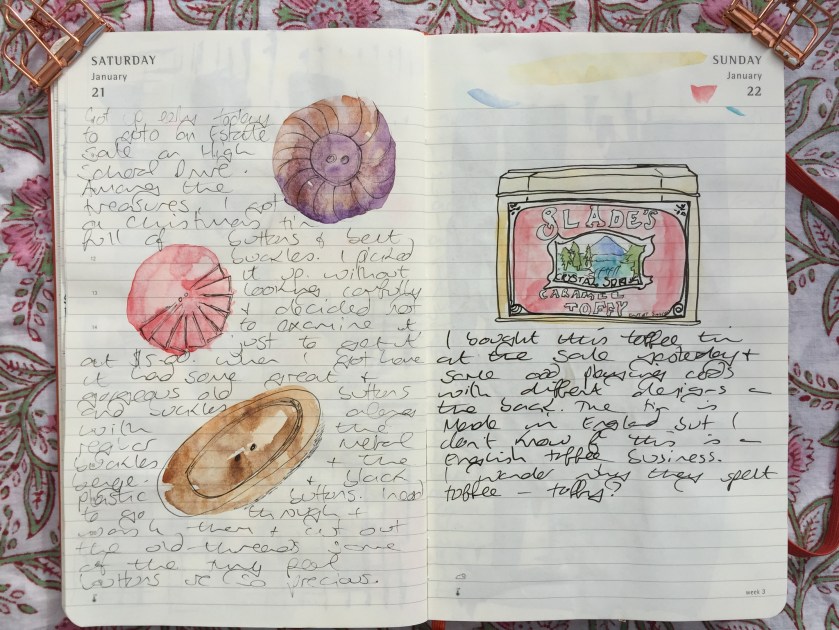 SATURDAY
January
21
Got up early today
to goto an Estate
Sale on High
School Drive.
Among the
treasures, I got
a Christmas tin
full of buttons & belt
buckles. I picked
it up without
looking carefully
& decided not
to examine it
just to get it
at $5.00. When I got home
it had some great &
gorgeous old buttons
and buckles along
with the
regular metal
buckles & the
beige & black
plastic buttons. I need
to go through &
wash them & cut out
the old threads some
of the tiny pearl
buttons are so precious.
SUNDAY
January
22
SLADE'S
CRYSTAL
CARAMEL
TOFFY
I bought this toffee tin
at the sale yesterday &
some odd playing cards
with different designs on
the back. The tin is
Made in England but I
don't know if this is an
English toffee business.
I wonder why they spelt
toffee – toffy?
week 3